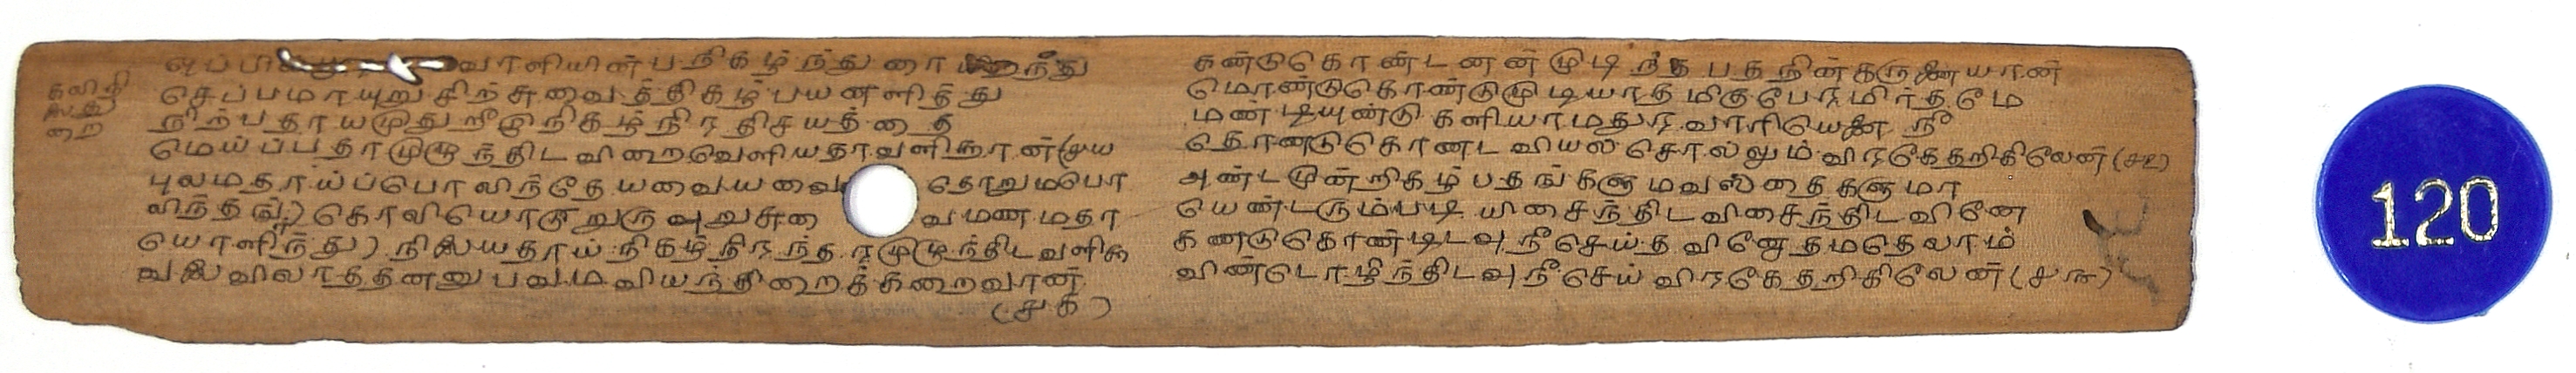 கலிநி
லைது
றை
வாளியின் பநிகழ்ந்து ரைய
செப்பமாயுறு சிற்சுவைத்திகழ் பயனளித்து
நிற்பதாயமுதுறீஇநிகழ்நிரதிசயத்தை
மெய்ப்பதாமுழுந்திட விறைவெளியதாவளிஞான்(சய
புலமதாய்ப்பொலிந்தே யவையவை தொறுமபொ
லிந்தங்) கொலியொடூறுருவுறுசுவை வமணமதா
யொளிந்து) நிலையதாய் நிகழ்நிரந்தரமுழுந்திடவளிகு
வலைவிலாதத்தனனுபவம வியந்திறைக்கறைவான்
(சக)
கண்டுகொண்டனன் முடிந்த பதநின்கருணையான்
மொண்டுகொண்டுமுடியாத மிகுபேரமிர்தமே
மண்டியுண்டு களியாமதுரவாரியெனை நீ
தொண்டுகொண்ட வியல் சொல்லும் விரகேதறிகிலேன்(சஉ)
அண்டமூன்றிகழ்பதங்களுமவஸ்தைகளுமா
யெண்டரும்படி யிசைந்திடவிசைந்திடவினே
கண்டுகொண்டிடவுநீசெய்தவினோதமதெலாம்
விண்டொழிந்திடவுநீசெய் விரகேதறிகிலேன்(சங)
120